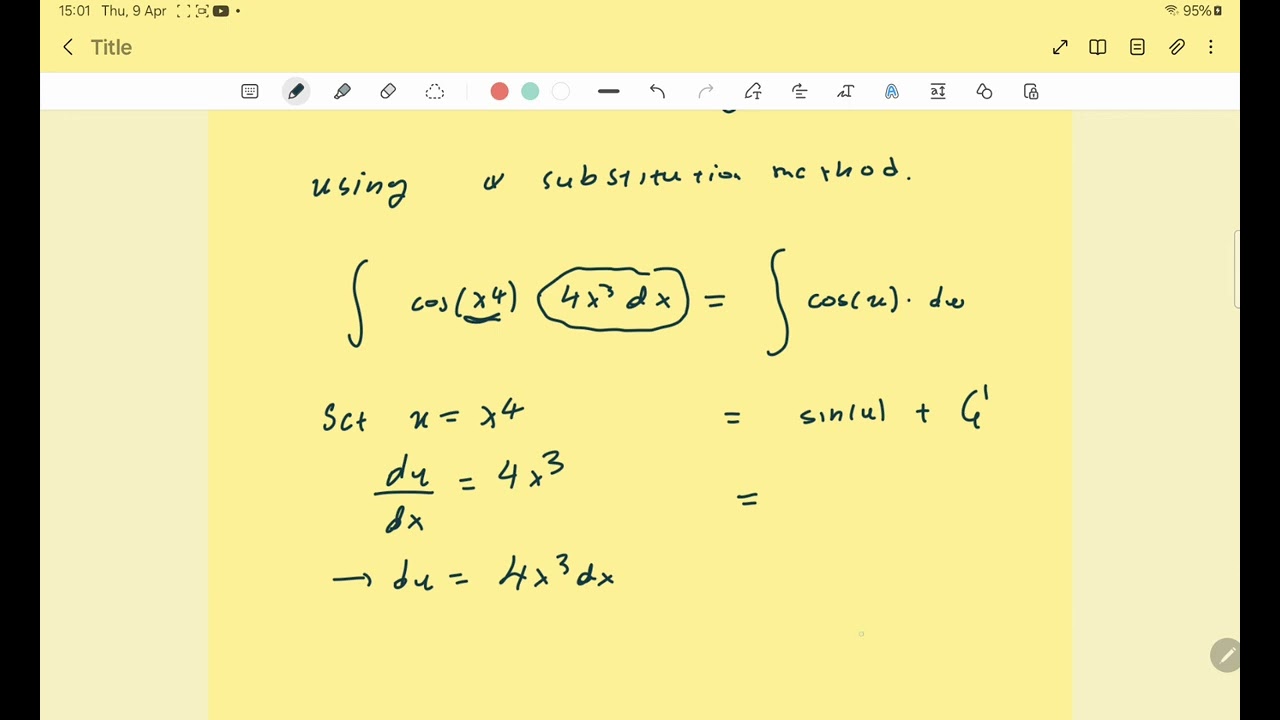 15:01 Thu, 9 Apr 95%
Title
using a substitution method.
∫ cos(x⁴) 4x³ dx = ∫ cos(u) · du
Set u = x⁴ = sin(u) + C
du/dx = 4x³ =
→ du = 4x³ dx